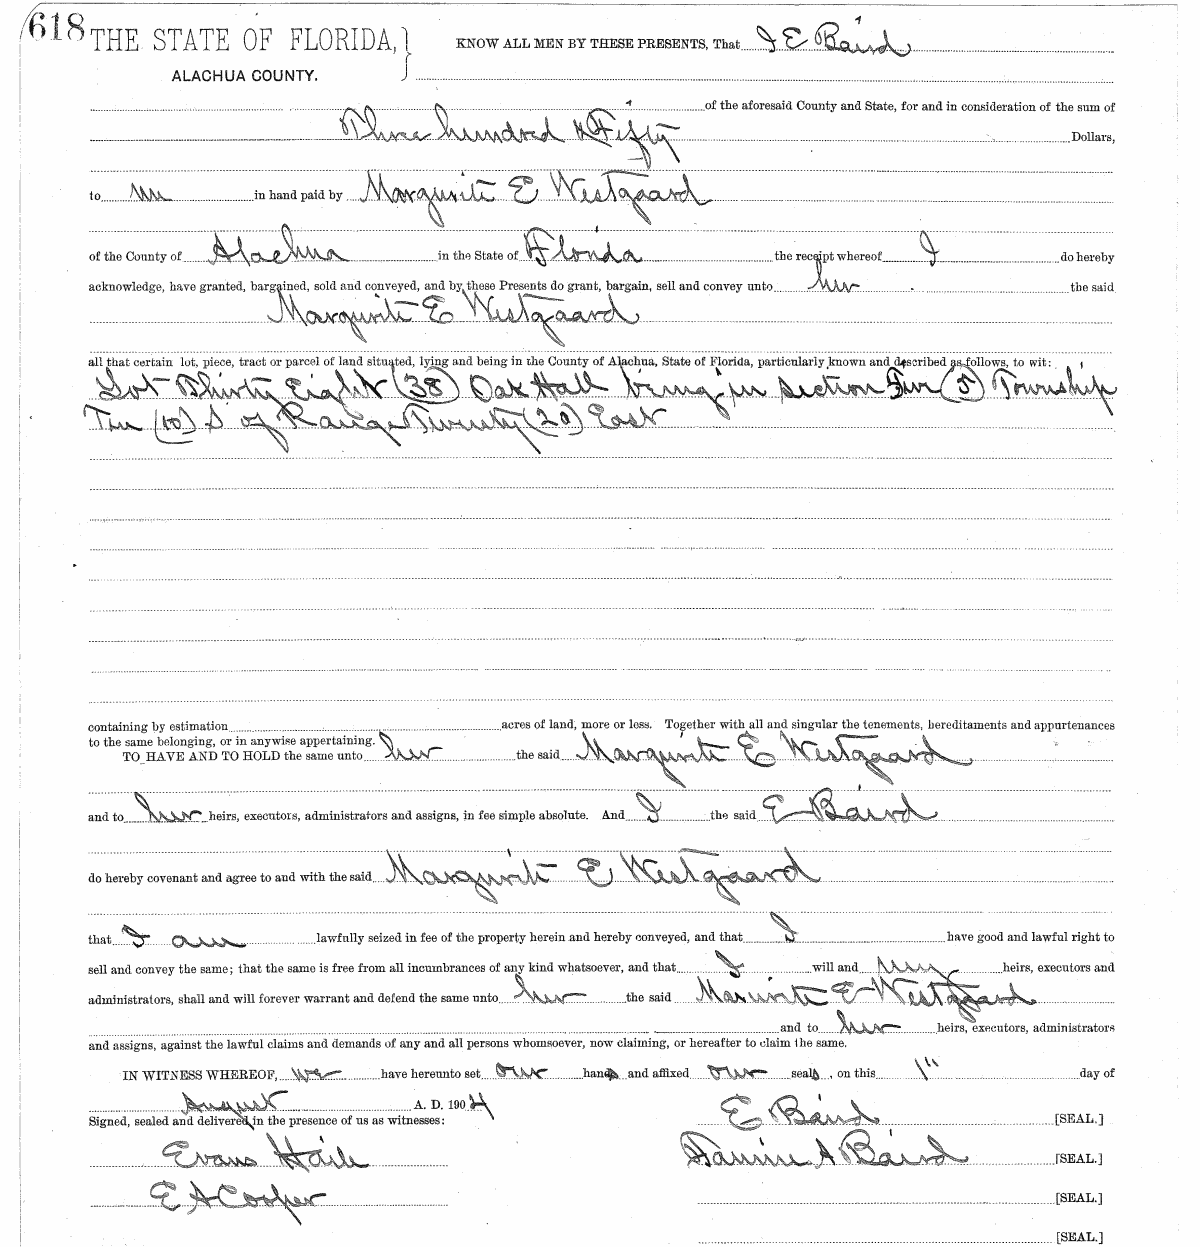 618 THE STATE OF FLORIDA,
ALACHUA COUNTY.
KNOW ALL MEN BY THESE PRESENTS, That I E Baird
of the aforesaid County and State, for and in consideration of the sum of
Three hundred & Fifty Dollars,
to me in hand paid by Margurite E Westgaard
of the County of Alachua in the State of Florida the receipt whereof I do hereby
acknowledge, have granted, bargained, sold and conveyed, and by these Presents do grant, bargain, sell and convey unto her the said
Margurite E Westgaard
all that certain lot, piece, tract or parcel of land situated, lying and being in the County of Alachua, State of Florida, particularly known and described as follows, to wit:
Lot Thirty Eight (38) Oak Hall being in section Five (5) Township
Ten (10) S of Range Twenty (20) East
containing by estimation acres of land, more or less. Together with all and singular the tenements, hereditaments and appurtenances
to the same belonging, or in anywise appertaining.
TO HAVE AND TO HOLD the same unto her the said Margurite E Westgaard
and to her heirs, executors, administrators and assigns, in fee simple absolute. And I the said E Baird
do hereby covenant and agree to and with the said Margurite E Westgaard
that I am lawfully seized in fee of the property herein and hereby conveyed, and that I have good and lawful right to
sell and convey the same; that the same is free from all incumbrances of any kind whatsoever, and that I will and my heirs, executors and
administrators, shall and will forever warrant and defend the same unto her the said Marurite E Westgaard
and to her heirs, executors, administrators
and assigns, against the lawful claims and demands of any and all persons whomsoever, now claiming, or hereafter to claim the same.
IN WITNESS WHEREOF, we have hereunto set our hands and affixed our seals, on this 1" day of
August A. D. 1904
Signed, sealed and delivered in the presence of us as witnesses:
E Baird [SEAL.]
Evans Haile
Fannie A Baird [SEAL.]
E A Cooper
[SEAL.]
[SEAL.]